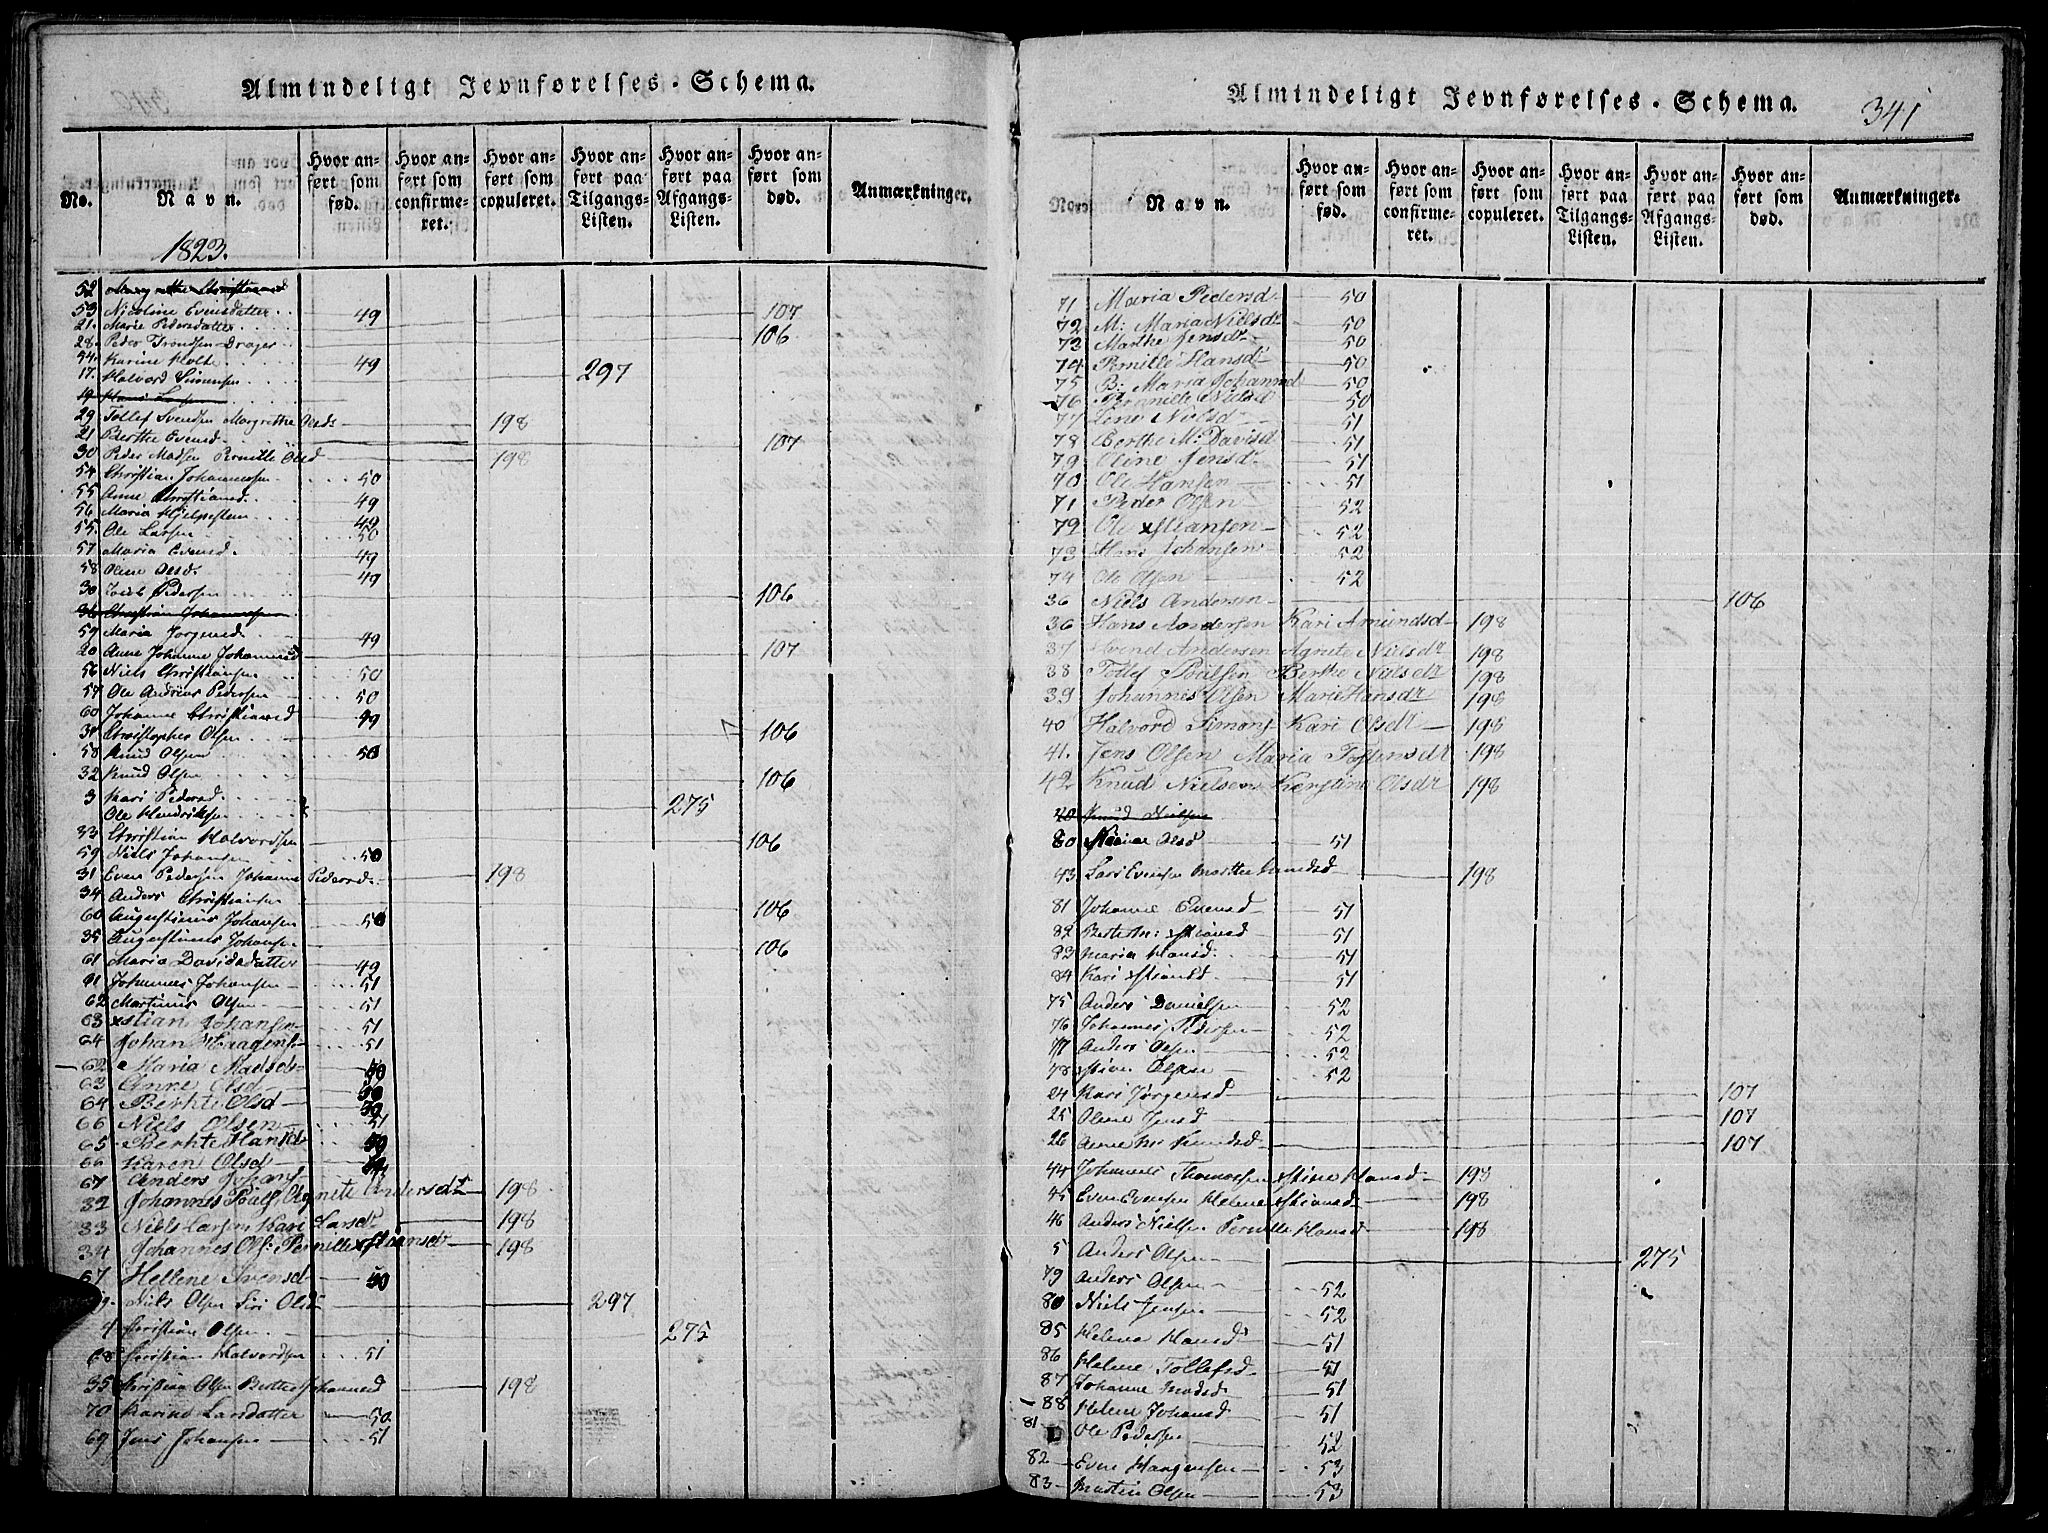 Almindeligt Jevnførelses-Schema.
No. Navn. Hvor anført som fød. Hvor anført som confirmeret. Hvor anført som copuleret. Hvor anført paa Tilgangs-Listen. Hvor anført paa Afgangs-Listen. Hvor anført som død. Anmærkninger.
1823.
52
53 Nicoline Evensdatter 49
21. Marie Pedersdatter 107
28. Peder Trondsen Drager 106
54. Karine Holte 49
17. Halvord Simensen 297
19
29 Tollef Svendsen Margrethe Olsdr 198
21 Berthe Evensd 107
30 Peder Madsen Pernille Olsd 198
54 Christian Johannessen 50
55 Anne Christiansd. 49
56 Maria 49
55. Ole Larsen 50
57 Maria Evensd. 49
58 Oline Olsd. 49
30 Pedersen 106
36 Christian Johannessen
59 Maria Jørgensd. 49
20 Anne Johanne Johannesd 107
56 Niels Christiansen 50
57 Ole Andreas Pedersen 50
60 Johanne Christiansd 49
31 Christopher Olsen 106
58 Knud Olsen 50
32 Knud Olsen 106
3 Kari Pedersd. 275
Ole Hendriksen
33 Christian Halvordsen 106
59 Niels Johansen 50
31 Even Pedersen Johanne Pedersd. 198
34 Anders Christiansen 106
60 Augustinus Johansen 50
35 Augustinus Johansen 106
61 Maria Davidsdatter 49
61 Johannes Johansen 51
62 Martinus Olsen 51
63 xstian Johansen 51
64 Johan Haagens 51
62 Maria Madsdr 50
63 Anne Olsd 50
64 Berthe Olsd 50
66 Niels Olsen 51
65 Berhte Hansd 50
66 Karen Olsd
67 Anders Johans
32 Johannes Poulss. Agnete Andersdt 198
33 Niels Larsen Kari Larsdr 198
34 Johannes Ols: Pernille xstiansd 198
67 Hellene Svensd 50
9. Niels Olsen Siri Olsd 297
4 Christian Olsen 275
68 Christian Halvordsen 51
35 Christian Olsen Berthe Johannesd 198
70 Karine Larsdatter 50
69 Jens Johansen 51
Almindeligt Jevnførelses-Schema. 341
No. Navn. Hvor anført som fød. Hvor anført som confirmeret. Hvor anført som copuleret. Hvor anført paa Tilgangs-Listen. Hvor anført paa Afgangs-Listen. Hvor anført som død. Anmærkninger.
71 Maria Pedersd 50
72 M: Maria Nielsdr 50
73 Marthe Jensdr 50
74 Pernille Hansdr 50
75 B: Maria Johannesd 50
76 Pernille Nielsd 50
77 Lene Nielsd 51
78 Berthe M: Davisd 51
79 Oline Jensdr 51
70 Ole Hansen 51
71 Peder Olsen 52
72 Ole xstiansen 52
73 Hans Johansen 52
74 Ole Olsen 52
36 Niels Andersen 106
36 Hans Andersen Kari Amundsd 198
37 Andersen Agnete Nielsdr 198
38 Tollef Poulsen Berthe Nielsdr 198
39 Johannes Olsen Marie Hansdr 198
40 Halvord Simons Kari Olsdr 198
41. Jens Olsen Maria Tostensdr 198
42 Knud Nielsen Kerstine Olsdr 198
40 Knud Nielsen
80 Olsd 51
43 Lars Evensen Marthe 198
81 Johanne Evensd 51
82 Berthe M: xstiansd 51
83 Maria Hansd. 51
84 Kari xstiansd 51
75 Anders Danielsen 52
76 Johannes Pedersen 52
77 Anders Olsen 52
78 xstian Olsen 52
24 Kari Jørgensd 107
25 Oline Jensd 107
26 Anne Ms Knudsd 107
44 Johannes Thomassen xstine Hansd 198
45 Even Evensen Helene xstiansd 198
46 Anders Nielsen Pernille Hansd 198
5 Anders Olsen 275
79 Anders Olsen 52
80 Niels Jensen 52
85 Helene Hansd 51
86 Helene Tollefsd 51
87 Johanne Madsd 51
88 Helene Johansd 51
81 Ole Pedersen 52
82 Even Haagensen 53
83 Martin Olsen 53